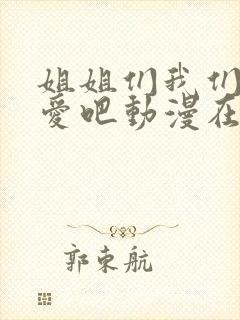 姐姐们我们
爱吧動漫在
郭束航